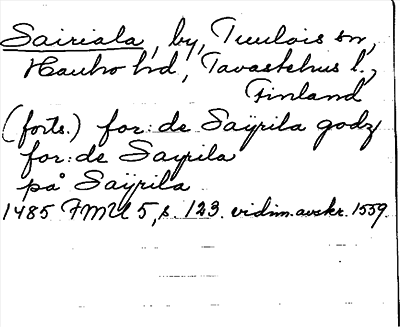 Sairiala, by, Tuulois sn,
Hauho hd, Tavastehus l.,
Finland
(forts.) for: de Saÿrila godz
for: de Sayrila
på Saÿrila
1485 FMU 5, s. 123. vidim. avskr. 1559.